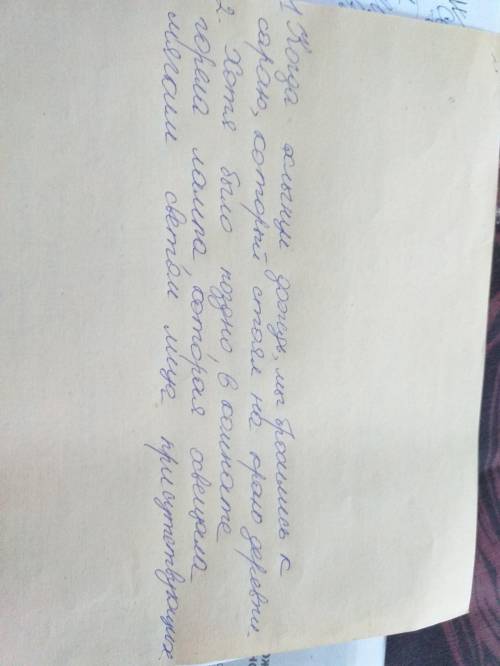 1 Когда хлынул дождь, мы бросились к
сараю, который стоял на краю деревни.
2. Хотя было поздно, в комнате
горела лампа которая освещала
мягким светом лица присутствующих